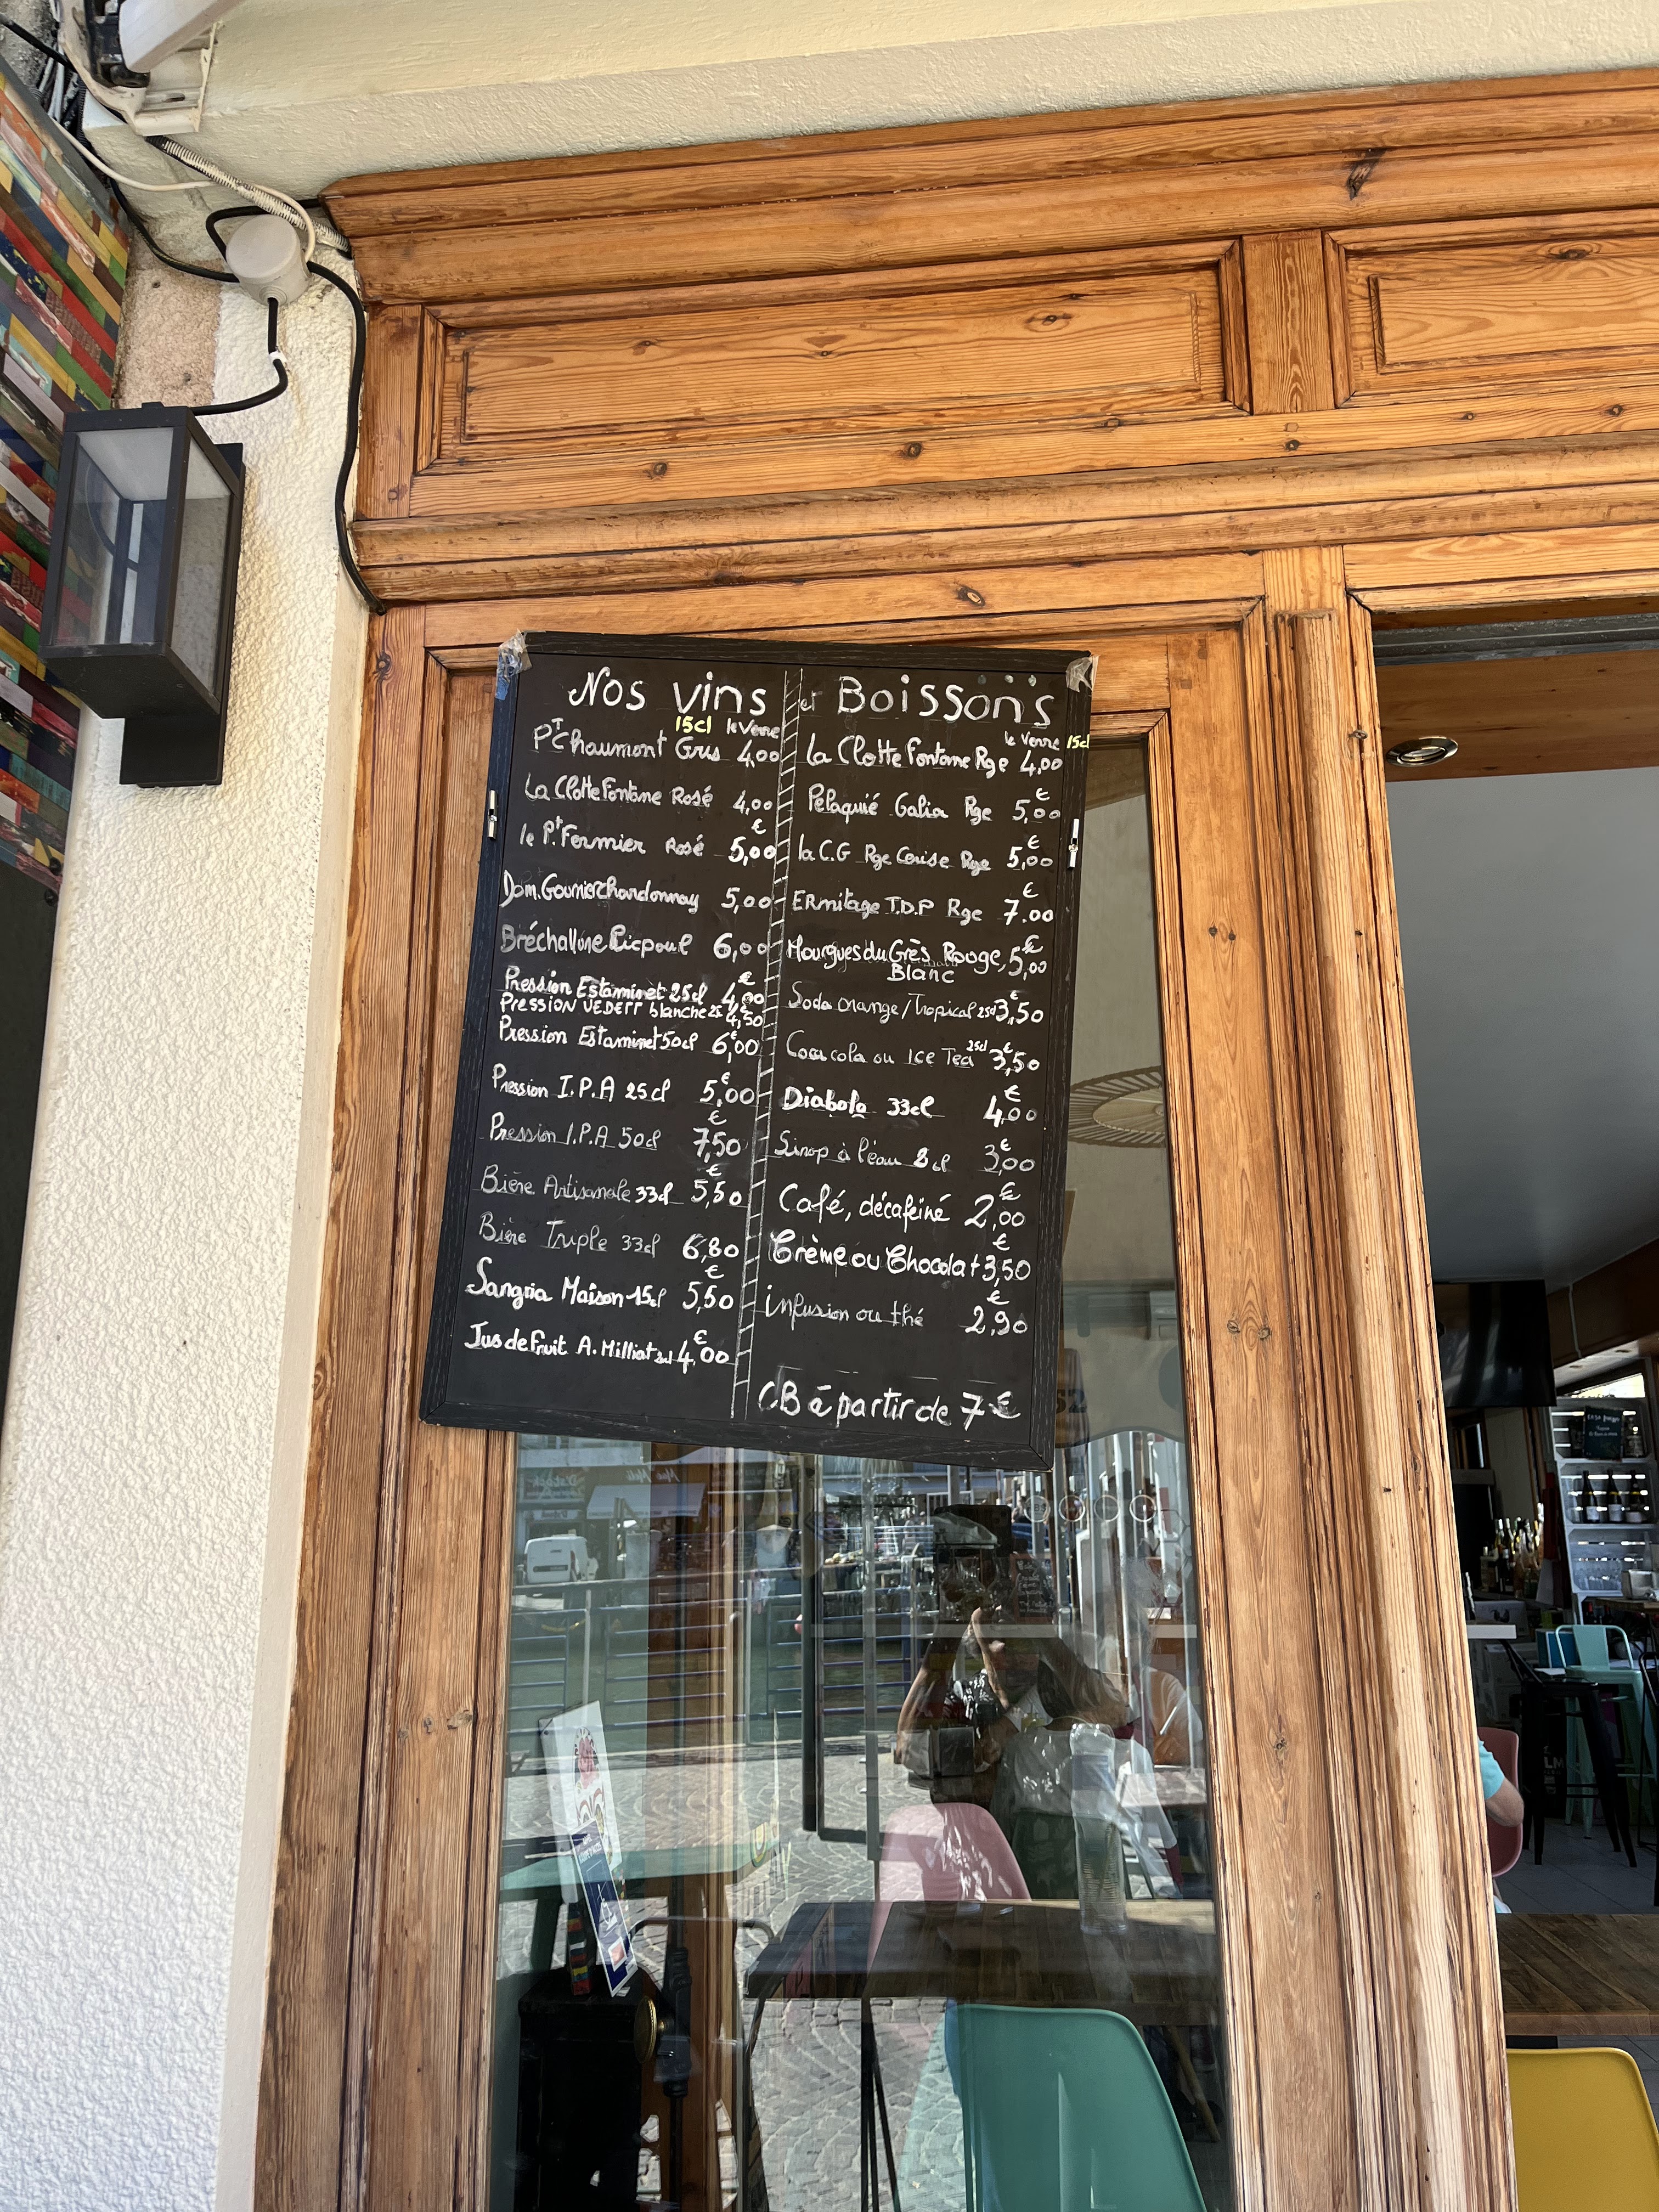 Nos vins et Boissons
15cl le Verre
Pt Chaumont Gris 4,00
La Clotte Fontane Rosé 4,00
le Pt. Fermier Rosé 5,00 €
Dom. Gournier Chardonnay 5,00
Bréchallune Picpoul 6,00
Pression Estaminet 25cl 4,00 €
PRESSION VEDETT blanche 25 4,50 €
Pression Estaminet 50cl 6,00 €
Pression I.P.A 25cl 5,00 €
Pression I.P.A 50cl 7,50 €
Bière Artisanale 33cl 5,50 €
Bière Triple 33cl 6,80
Sangria Maison 15cl 5,50 €
Jus de Fruit A. Milliat 4,00 €
le Verre 15cl
La Clotte Fontane Rge 4,00
Pelaquié Galia Rge 5,00 €
la C.G Rge Cerise Rge 5,00 €
ERmitage T.D.P Rge 7.00 €
Mourgues du Grès Rouge, 5,00 €
Blanc
Soda orange/Tropical 25cl 3,50 €
Coca cola ou Ice Tea 25cl 3,50 €
Diabolo 33cl 4,00 €
Sirop à l'eau 8cl 3,00 €
Café, décaféiné 2,00 €
Crème ou Chocolat 3,50 €
infusion ou thé 2,90 €
CB à partir de 7 €